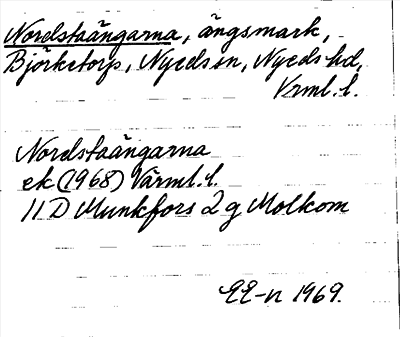 Nordstaängarna, ängsmark,
Björketorp, Nyeds sn, Nyeds hd,
Vrml. l.
Nordstaängarna
ek (1968) Värml. l.
11 D Munkfors 2 g Molkom
EE-n 1969.